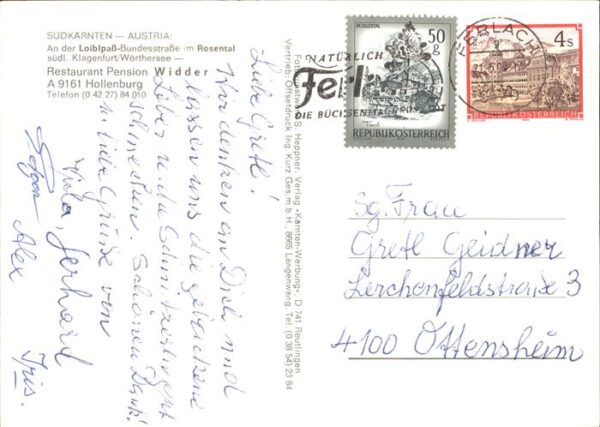 SÜDKÄRNTEN — AUSTRIA:
An der Loiblpaß-Bundesstraße im Rosental
südl. Klagenfurt/Wörthersee —
Restaurant Pension Widder
A 9161 Hollenburg
Telefon (0 42 27) 84 010
Liebe Gretl!
Wir denken an Dich und
lassen uns die gebackene
Leber u. die Schnitzerl gut
schmecken. Schönen Dank!
u. liebe Grüße von
Gerhard
Alex
Iris.
Heppner, Verlag »Kärnten-Werbung«, D 741 Reutlingen
Vertrieb: Offsetdruck Ing. Kurz Ges.m.b.H., 8665 Langenwang, Tel. (0 38 54) 23 84
NATÜRLICH
DIE BÜCHSENMACHER
50
g
REPUBLIK ÖSTERREICH
FERLACH
4 S
REPUBLIK ÖSTERREICH
Sg. Frau
Gretl Geidner
Lerchenfeldstraße 3
4100 Ottensheim